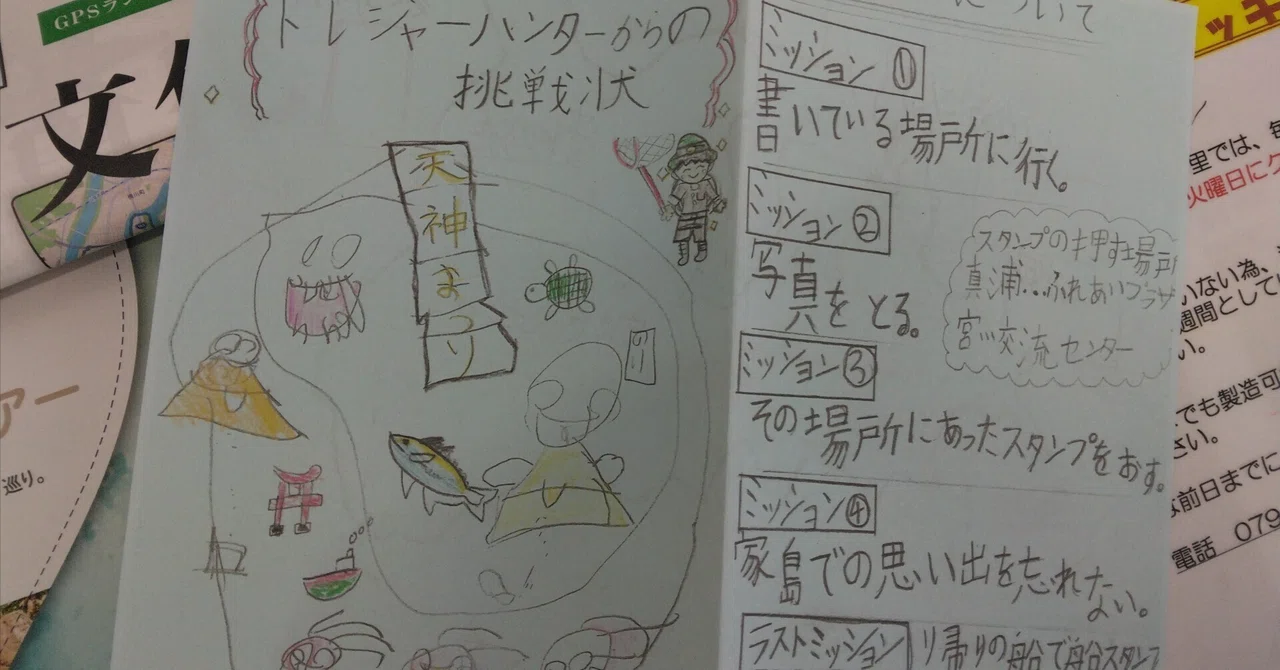 トレジャーハンターからの
挑戦状
天
神
ま
つ
り
について
ミッション①
書いている場所に行く。
ミッション②
写真をとる。
スタンプの押す場所
真浦…ふれあいプラザ
宮川交流センター
ミッション③
その場所にあったスタンプをおす。
ミッション④
家島での思い出を忘れない。
ラストミッション
帰りの船で船谷スタンプ
GPSラン
文化
アー
巡り。
ッキ
里では、毎
火曜日に
いない為、
週間として
い。
でも製造可
さい。
前日までに
電話 079